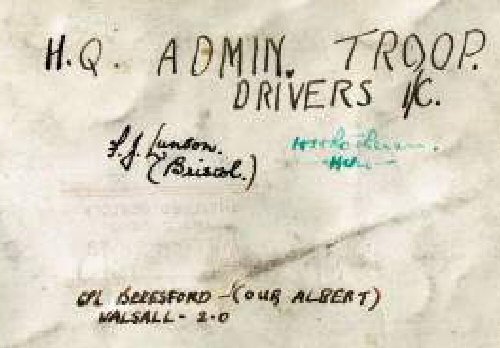 H.Q. ADMIN. TROOP.
DRIVERS I/C.
(Bristol.)
CPL BERESFORD - (OUR ALBERT)
WALSALL - 2-0